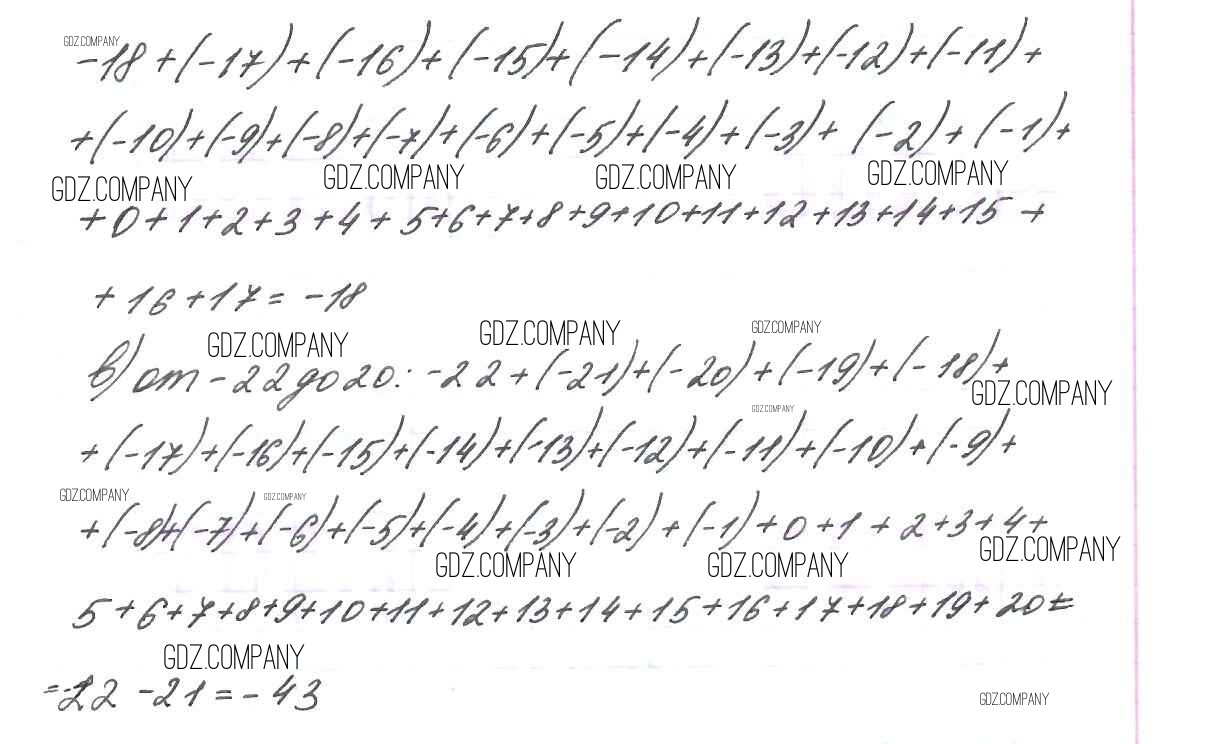 GDZ.COMPANY
-18+(-17)+(-16)+(-15)+(-14)+(-13)+(-12)+(-11)+
+(-10)+(-9)+(-8)+(-7)+(-6)+(-5)+(-4)+(-3)+(-2)+(-1)+
GDZ.COMPANY GDZ.COMPANY GDZ.COMPANY GDZ.COMPANY
+0+1+2+3+4+5+6+7+8+9+10+11+12+13+14+15+
+16+17=-18
GDZ.COMPANY GDZ.COMPANY GDZ.COMPANY
в) от -22 до 20: -22+(-21)+(-20)+(-19)+(-18)+
GDZ.COMPANY GDZ.COMPANY
+(-17)+(-16)+(-15)+(-14)+(-13)+(-12)+(-11)+(-10)+(-9)+
GDZ.COMPANY GDZ.COMPANY
+(-8)+(-7)+(-6)+(-5)+(-4)+(-3)+(-2)+(-1)+0+1+2+3+4+
GDZ.COMPANY GDZ.COMPANY GDZ.COMPANY
5+6+7+8+9+10+11+12+13+14+15+16+17+18+19+20=
GDZ.COMPANY
=-22-21=-43
GDZ.COMPANY